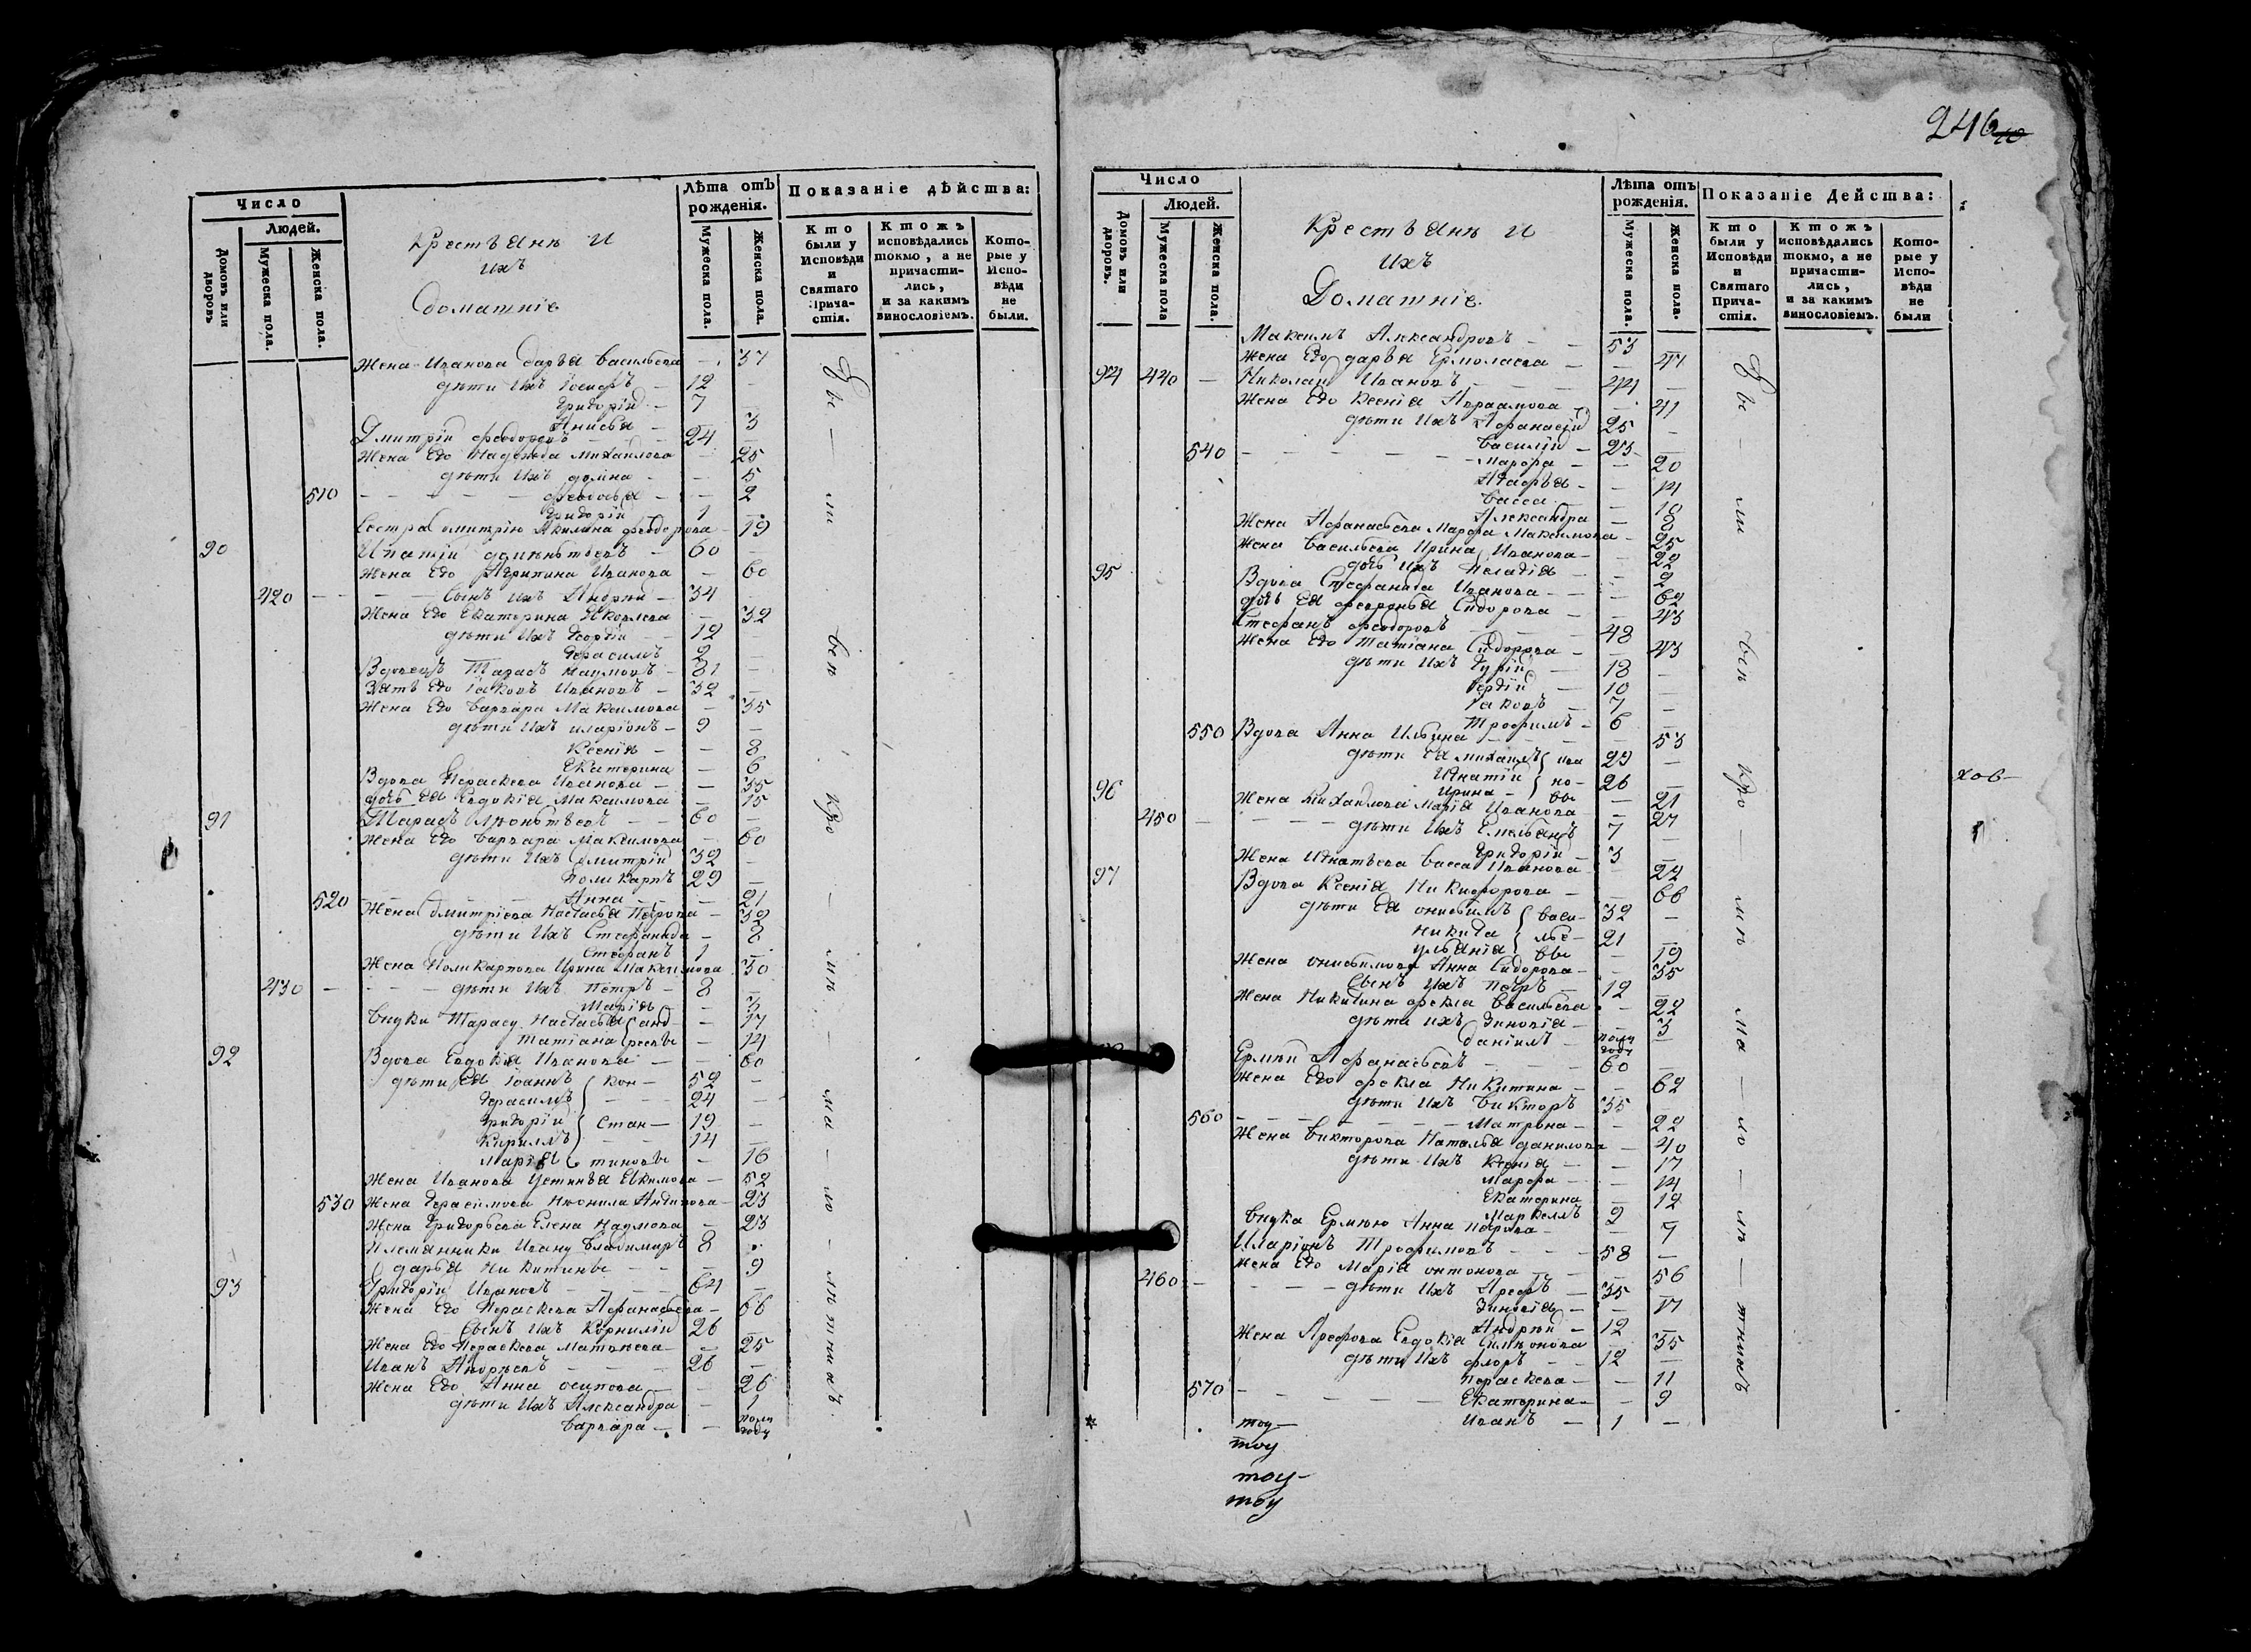 246
Число
Людей.
Домовъ или дворовъ
Мужеска пола.
Женска пола.
Крестьяне и
ихъ
домашніе
Лѣта отъ рожденія.
Мужеска пола.
Женска пола.
Показаніе дѣйства:
Кто были у Исповѣди и Святаго Прича-стія.
Ктожъ исповѣдались токмо, а не причасти-лись, и за какимъ винословіемъ.
Кото-рые у Испо-вѣди не были.
Жена Иванова дарья васильева — 37
дѣти ихъ Іосифъ — 12 —
Григорій — 7 —
Анисья — 3
Дмитрій феодоровъ — 24 —
Жена его надежда михаилова — 25
дѣти ихъ домна — — 5
510 — феодосья — — 2
Григорій 1 —
Сестра дмитрію Акилина феодорова 19
90 Ипатій дементьевъ — 60 —
Жена его Агрипина Иванова — 60
420 — сынъ ихъ Андрей — 34 —
Жена его Екатерина Яковлева — 32
дѣти ихъ Георгій — 12 —
Герасимъ 2 —
Вдовецъ Тарасъ наумовъ — 81 —
Зять его Іаковъ Ивановъ — 32 —
Жена его варвара Максимова — 35
дѣти ихъ иларіонъ — 9 —
Ксенія — — 8
Екатерина — 6
Вдова Параскева Иванова — — 35
дочь ея Евдокія Максимова — 15
91 Тарасъ Леонтьевъ — 60 —
Жена его варвара Максимова — 60
дѣти ихъ дмитрій 32 —
поликарпъ 29 —
520 — Анна — — 21
Жена дмитріева Настасья Петрова — 32
дѣти ихъ Стефанида — 8
Стефанъ 1 —
Жена Поликарпова Ирина Максимова 30
430 — дѣти ихъ Петръ — 8 —
Марія — — 3
внуки Тарасу Настасья { анд — — 17
Татіана { реевы — 14
92 Вдова Евдокія Иванова — — 60
дѣти ея Іоаннъ { кон — 52 —
Герасимъ — 24 —
Григорій { стан — 19 —
Кириллъ — 14 —
марія { тиновы — 16
Жена Иванова Устинья Екимова — 52
530 Жена Герасимова Неонила 23
Жена Григорьева Елена наумова — 23
Племянники Ивану владимиръ 8 —
дарья никитины — — 9
93 Григорій Ивановъ — 64 —
Жена его Параскева Афанасьева — 66
сынъ ихъ корнилій 26 —
Жена его Параскева Матвеева — 25
Иванъ Андреевъ — 26 —
Жена его Анна осипова — 26
дѣти ихъ Александра — 1
варвара — — полу году
бы — ли — всѣ кро — мѣ — ма — ло — лѣтныхъ
Число
Людей.
Домовъ или дворовъ.
Мужеска пола
Женска пола.
Крестьяне и
ихъ
Домашніе
Лѣта отъ рожденія.
Мужеска пола.
Женска пола.
Показаніе Действа:
Кто были у Исповѣди и Святаго Прича-стія.
Ктожъ исповѣдались токмо, а не причасти-лись, и за какимъ винословіемъ.
Кото-рые у Испо-вѣди не были
Максимъ Александровъ — — 53
Жена его дарья Ермолаева — — 47
94 440 — Николай Ивановъ — 44
Жена его Ксенія Авраамова — 41
дѣти ихъ Афанасій 25 —
540 — василій — 23 —
марфа — — 20
Агафья — — 14
васса — — 10
Александра — 8
Жена Афанасьева марфа Максимова — 25
Жена васильева Ирина Иванова — 22
дочь ихъ пелагія — — 2
95 Вдова Стефанида Иванова — — 62
дочь ея февронья Сидорова — — 43
Стефанъ феодоровъ — 48
Жена его татіана Сидорова — — 43
дѣти ихъ Гурій — 18 —
Сергій — 10 —
Іаковъ — 7 —
Трофимъ — 6 —
550 Вдова Анна Ильина — — 53
дѣти ея михаилъ { ива 29 —
Игнатій { но — 26 —
96 Ирина — { вы — 21
Жена михаилова марія Иванова — 27
450 — дѣти ихъ Емельянъ 7 —
Григорій — 3 —
Жена Игнатьева васса Иванова — 22
97 Вдова Ксенія Никифорова — — 66
дѣти ея онисимъ { васи — 32 —
никита { лье — 21 —
ульянія { вы — 19
Жена онисимова Анна Сидорова — — 35
сынъ ихъ Петръ — 12 —
Жена Никитина фекла васильева — 22
дѣти ихъ Зиновія — — 3
даніилъ — полу году —
Ермей Афанасьевъ — 60
Жена его фекла Никитина — — 62
дѣти ихъ викторъ 35
560 — матрона — — 22
Жена викторова Наталья данилова — 40
дѣти ихъ Ксенія — — 17
марфа — — 14
Екатерина — 12
маркеллъ 9
внука Ермею Анна Петрова — — 7
Иларіонъ Трофимовъ — 58 —
Жена его марія антонова — — 56
460 — дѣти ихъ Арефъ — 35 —
Зиновія — — 17
Андрей — 12 —
Жена Арефова Евдокія Симеонова — 35
дѣти ихъ флоръ — 12 —
параскева — — 11
570 — Екатерина — — 9
Иванъ — 1 —
тоу —
тоу
тоу —
тоу
бы — ли всѣ кро — мѣ ма — ло — лѣ — тныхъ
хов —